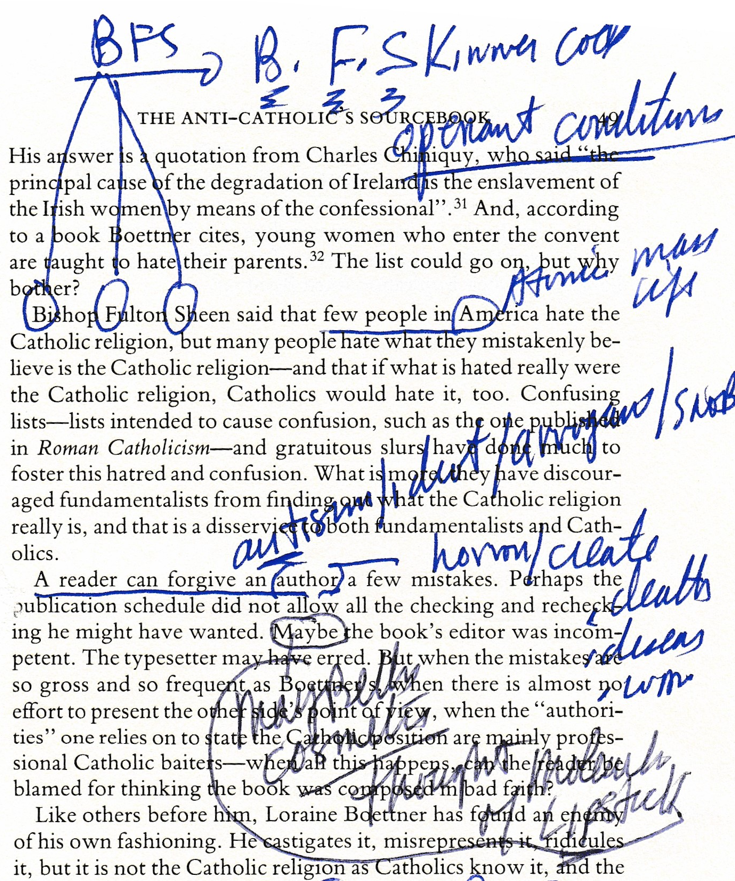 BFS B. F. Skinner
THE ANTI-CATHOLIC'S SOURCEBOOK 49
operant conditions
His answer is a quotation from Charles Chiniquy, who said “the
principal cause of the degradation of Ireland is the enslavement of
the Irish women by means of the confessional”.³¹ And, according
to a book Boettner cites, young women who enter the convent
are taught to hate their parents.³² The list could go on, but why
bother?
Atomic mass
Bishop Fulton Sheen said that few people in America hate the
Catholic religion, but many people hate what they mistakenly be-
lieve is the Catholic religion—and that if what is hated really were
the Catholic religion, Catholics would hate it, too. Confusing
lists—lists intended to cause confusion, such as the one published
in Roman Catholicism—and gratuitous slurs have done much to
foster this hatred and confusion. What is more, they have discour-
aged fundamentalists from finding out what the Catholic religion
really is, and that is a disservice to both fundamentalists and Cath-
olics.
autism/
horror/create
A reader can forgive an author a few mistakes. Perhaps the
publication schedule did not allow all the checking and recheck-
ing he might have wanted. Maybe the book's editor was incom-
petent. The typesetter may have erred. But when the mistakes are
so gross and so frequent as Boettner's, when there is almost no
effort to present the other side's point of view, when the “authori-
ties” one relies on to state the Catholic position are mainly profes-
sional Catholic baiters—when all this happens, can the reader be
blamed for thinking the book was composed in bad faith?
deaths
Maybelly
cosmetics
thought
of Lipstick
Like others before him, Loraine Boettner has found an enemy
of his own fashioning. He castigates it, misrepresents it, ridicules
it, but it is not the Catholic religion as Catholics know it, and the